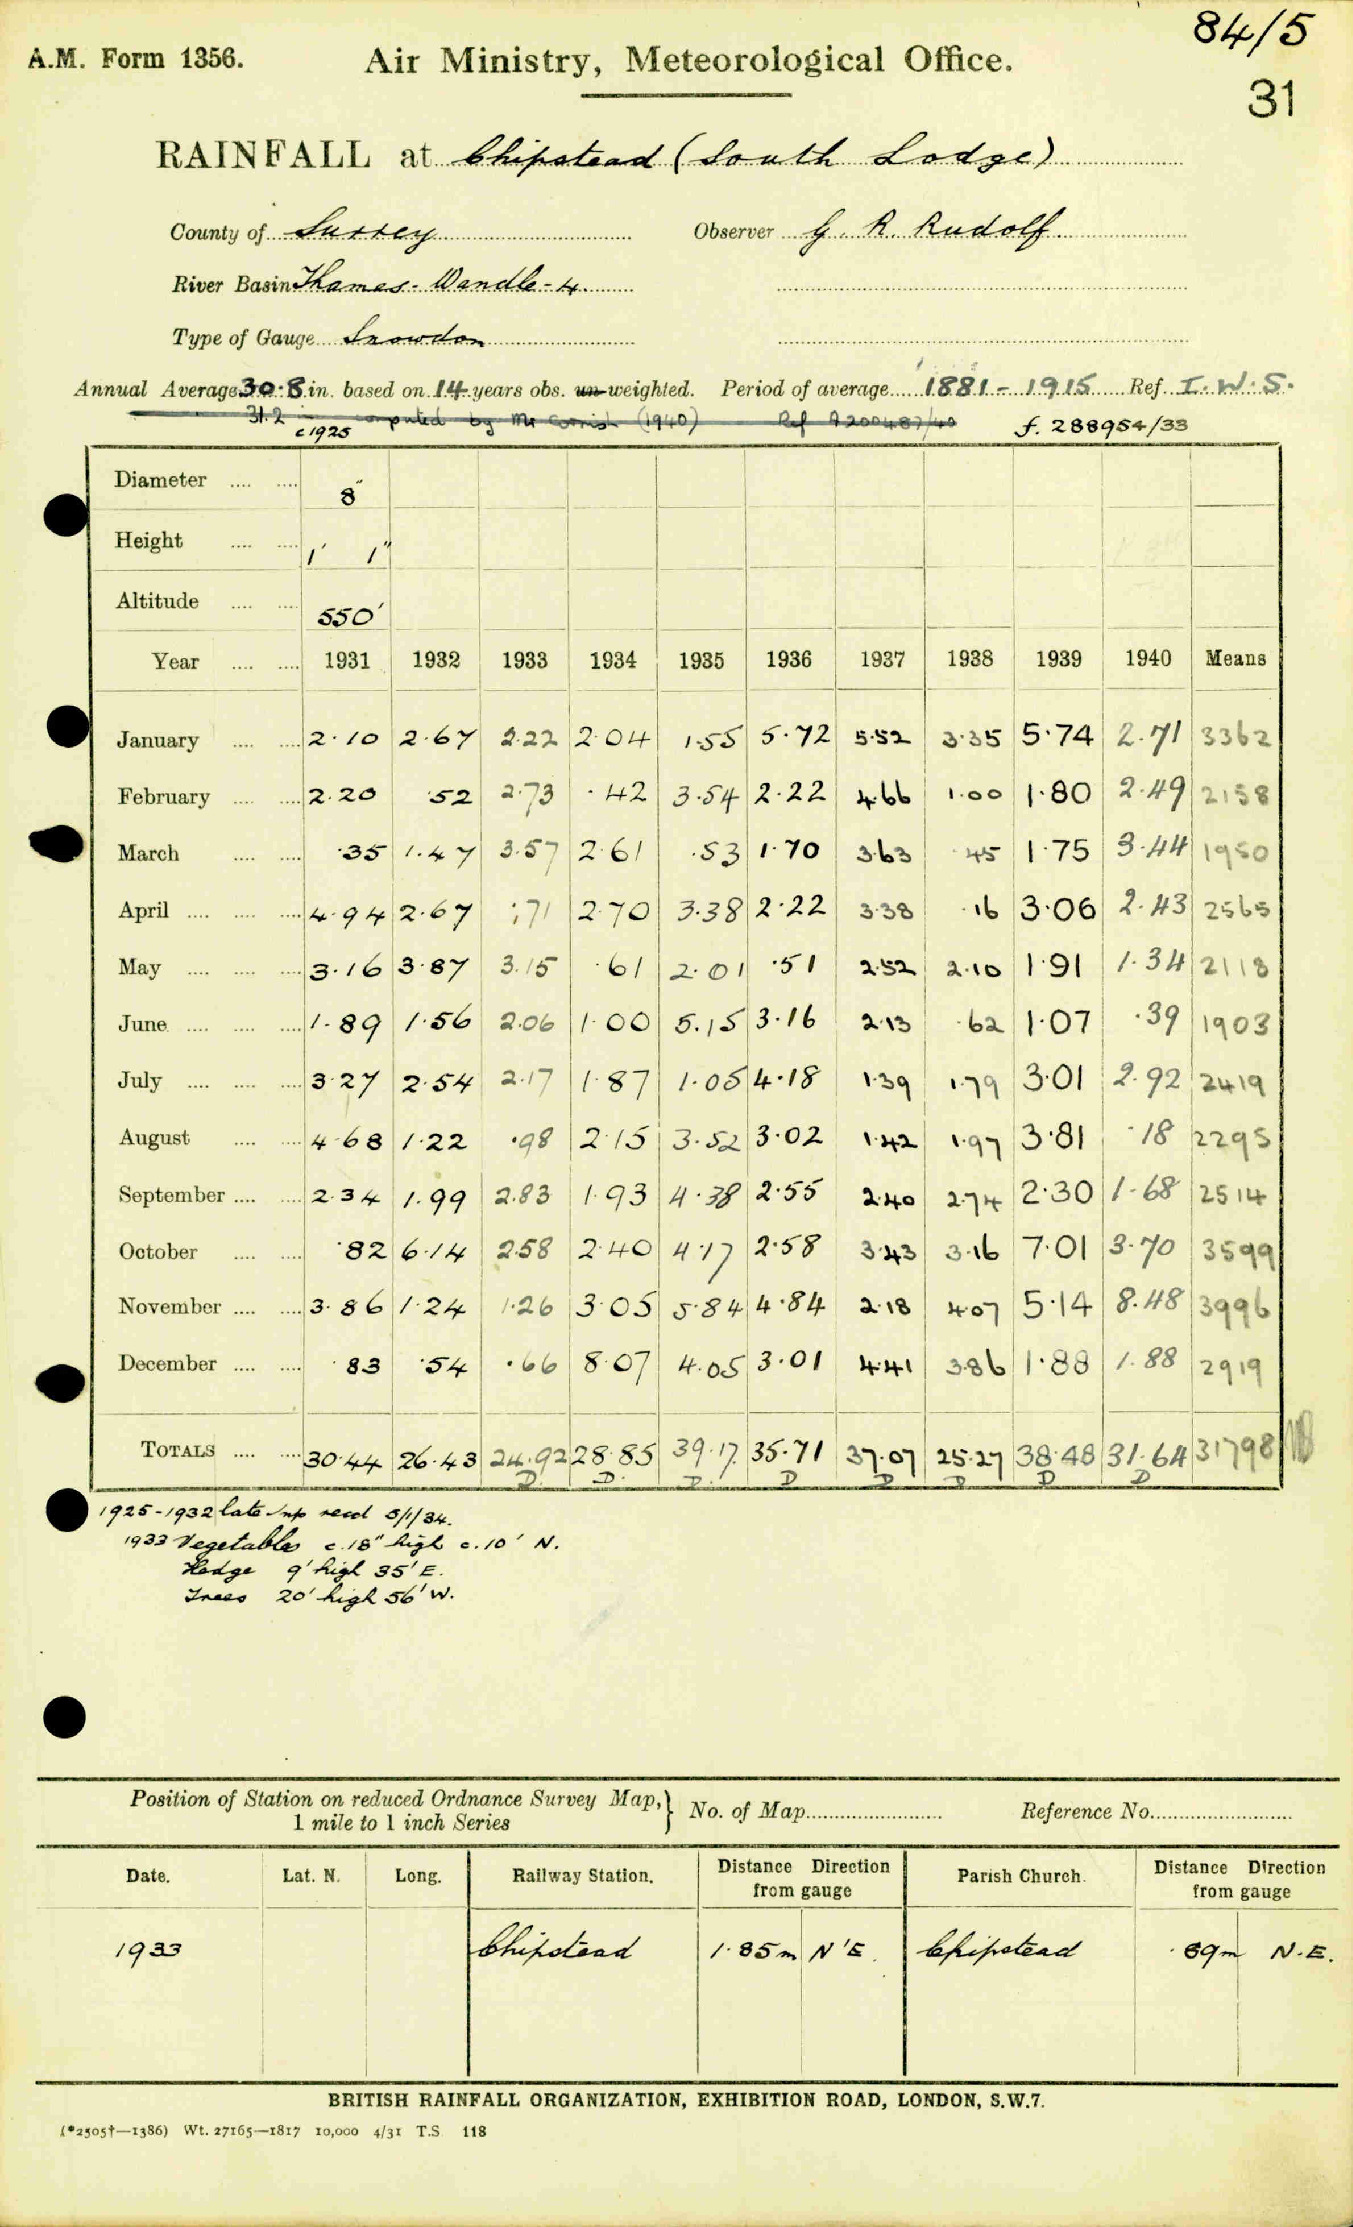 84/5
A.M. Form 1356. Air Ministry, Meteorological Office.
31
RAINFALL at Chipstead (South Lodge)
County of Surrey Observer G. R. Rudolf
River Basin Thames - Wandle - 4.
Type of Gauge Snowdon
Annual Average 30.8 in. based on 14 years obs. un-weighted. Period of average 1881 - 1915 Ref. I.W.S.
31.2 computed by Mr Cornish (1940) Ref A200487/40
c1925 f. 288954/33
Diameter .... .... 8"
Height .... .... 1' 1"
Altitude .... .... 550'
Year .... .... 1931 1932 1933 1934 1935 1936 1937 1938 1939 1940 Means
January .... .... 2.10 2.67 2.22 2.04 1.55 5.72 5.52 3.35 5.74 2.71 3362
February .... .... 2.20 .52 2.73 .42 3.54 2.22 4.66 1.00 1.80 2.49 2158
March .... .... .35 1.47 3.57 2.61 .53 1.70 3.63 .45 1.75 3.44 1950
April .... .... .... 4.94 2.67 .71 2.70 3.38 2.22 3.38 .16 3.06 2.43 2565
May .... .... .... 3.16 3.87 3.15 .61 2.01 .51 2.52 2.10 1.91 1.34 2118
June .... .... .... 1.89 1.56 2.06 1.00 5.15 3.16 2.13 .62 1.07 .39 1903
July .... .... .... 3.27 2.54 2.17 1.87 1.05 4.18 1.39 1.79 3.01 2.92 2419
August .... .... 4.68 1.22 .98 2.15 3.52 3.02 1.42 1.97 3.81 .18 2295
September .... .... 2.34 1.99 2.83 1.93 4.38 2.55 2.40 2.74 2.30 1.68 2514
October .... .... .82 6.14 2.58 2.40 4.17 2.58 3.43 3.16 7.01 3.70 3599
November .... .... 3.86 1.24 1.26 3.05 5.84 4.84 2.18 4.07 5.14 8.48 3996
December .... .... .83 .54 .66 8.07 4.05 3.01 4.41 3.86 1.88 1.88 2919
TOTALS .... .... 30.44 26.43 24.92 28.85 39.17 35.71 37.07 25.27 38.48 31.64 31798
D. D. D. D D D D D
1925-1932 late recd 5/1/34.
1933 Vegetables c.18" high c.10' N.
Hedge 9' high 35' E.
Trees 20' high 56' W.
Position of Station on reduced Ordnance Survey Map, } No. of Map.......... Reference No..........
1 mile to 1 inch Series
Date. Lat. N. Long. Railway Station. Distance Direction from gauge Parish Church. Distance Direction from gauge
1933 Chipstead 1.85m N'E. Chipstead .89m N.E.
BRITISH RAINFALL ORGANIZATION, EXHIBITION ROAD, LONDON, S.W.7.
(*2505†—1386) Wt. 27165—1817 10,000 4/31 T.S 118